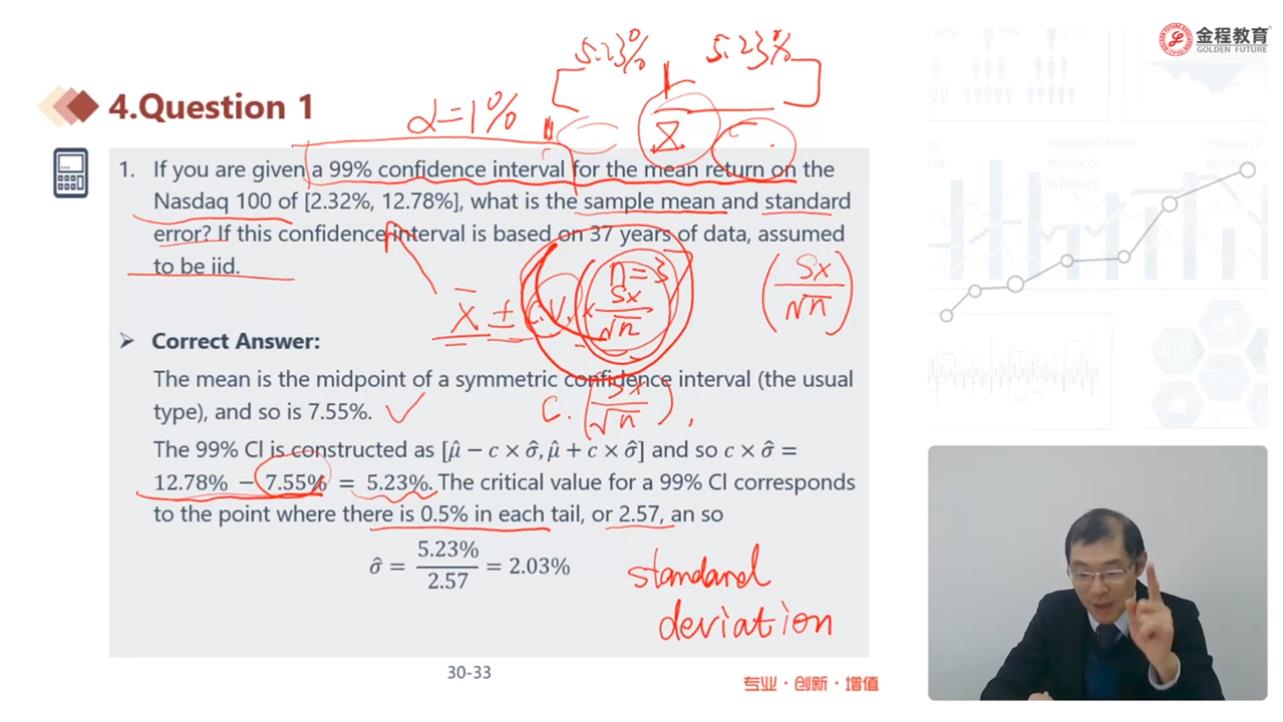 金程教育
GOLDEN FUTURE
5.23% 5.23%
4.Question 1
α=1%
x̄
1. If you are given a 99% confidence interval for the mean return on the
Nasdaq 100 of [2.32%, 12.78%], what is the sample mean and standard
error? If this confidence interval is based on 37 years of data, assumed
to be iid.
n=3
x̄ ± c.v. × Sx/√n
(Sx/√n)
Correct Answer:
The mean is the midpoint of a symmetric confidence interval (the usual
type), and so is 7.55%.
c. (Sx/√n),
The 99% Cl is constructed as [μ̂ − c × σ̂, μ̂ + c × σ̂] and so c × σ̂ =
12.78% − 7.55% = 5.23%. The critical value for a 99% Cl corresponds
to the point where there is 0.5% in each tail, or 2.57, an so
σ̂ = 5.23%/2.57 = 2.03%
standard
deviation
30-33
专业·创新·增值